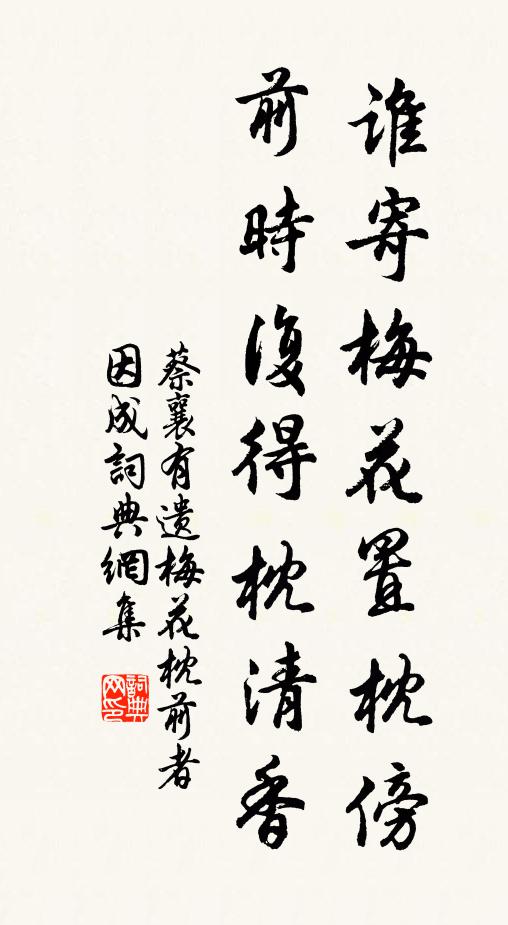 誰寄梅花置枕傍
前時復得枕清香
蔡襄有遺梅花枕前者
因成詞典網集
詞典网印